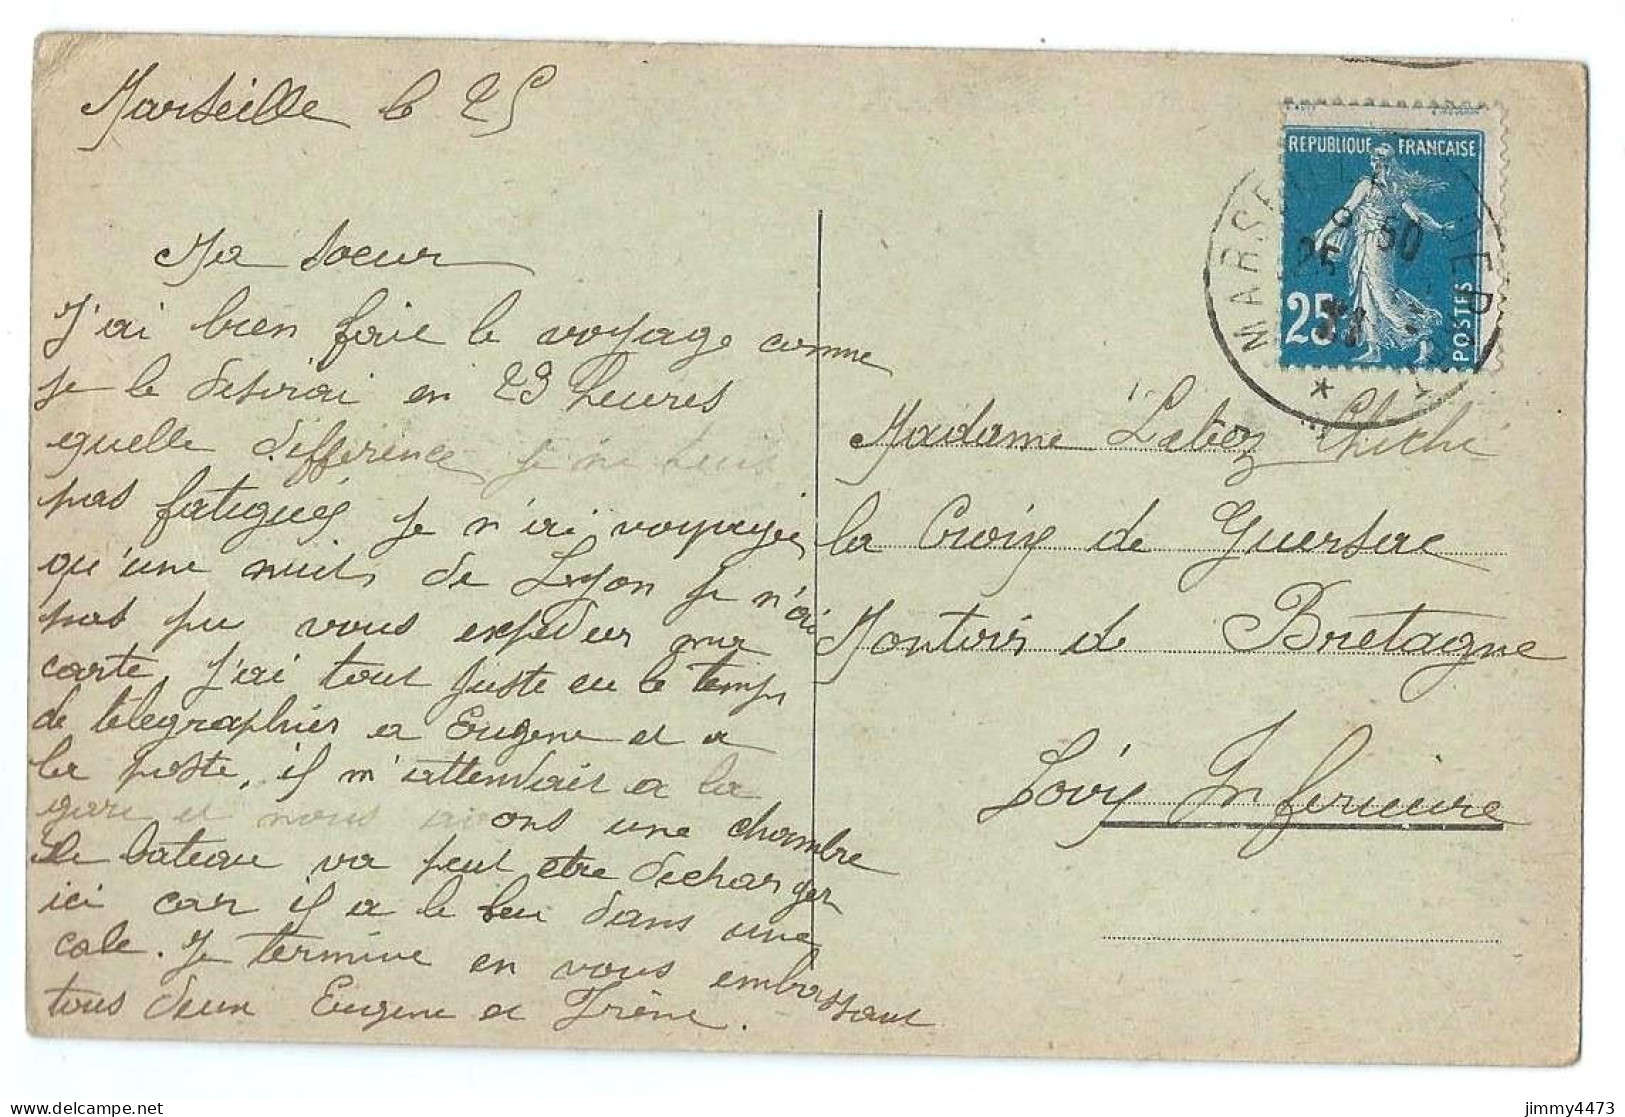 Marseille le 25
Ma soeur
J'ai bien faie le voyage comme
je le desirai en 23 heures
quelle différence je ne suis
pas fatiguée je n'ai voyagée
qu'une nuit, de Lyon je n'ai
pas pu vous expedier ma
carte, j'ai tout juste eu le temps
de telegraphier a Eugene et a
la poste, il m'attendait a la
gare et nous avons une chambre
le bateau va peut etre decharger
ici car il a le feu dans une
cale. Je termine en vous embrassant
tous deux Eugene et Irène.
REPUBLIQUE FRANCAISE
25
POSTES
MARSEILLE
25
50
Madame Chiché
la Croix de Guersac
Montoir de Bretagne
Loire Inferieure
delcampe.net
jimmy4473